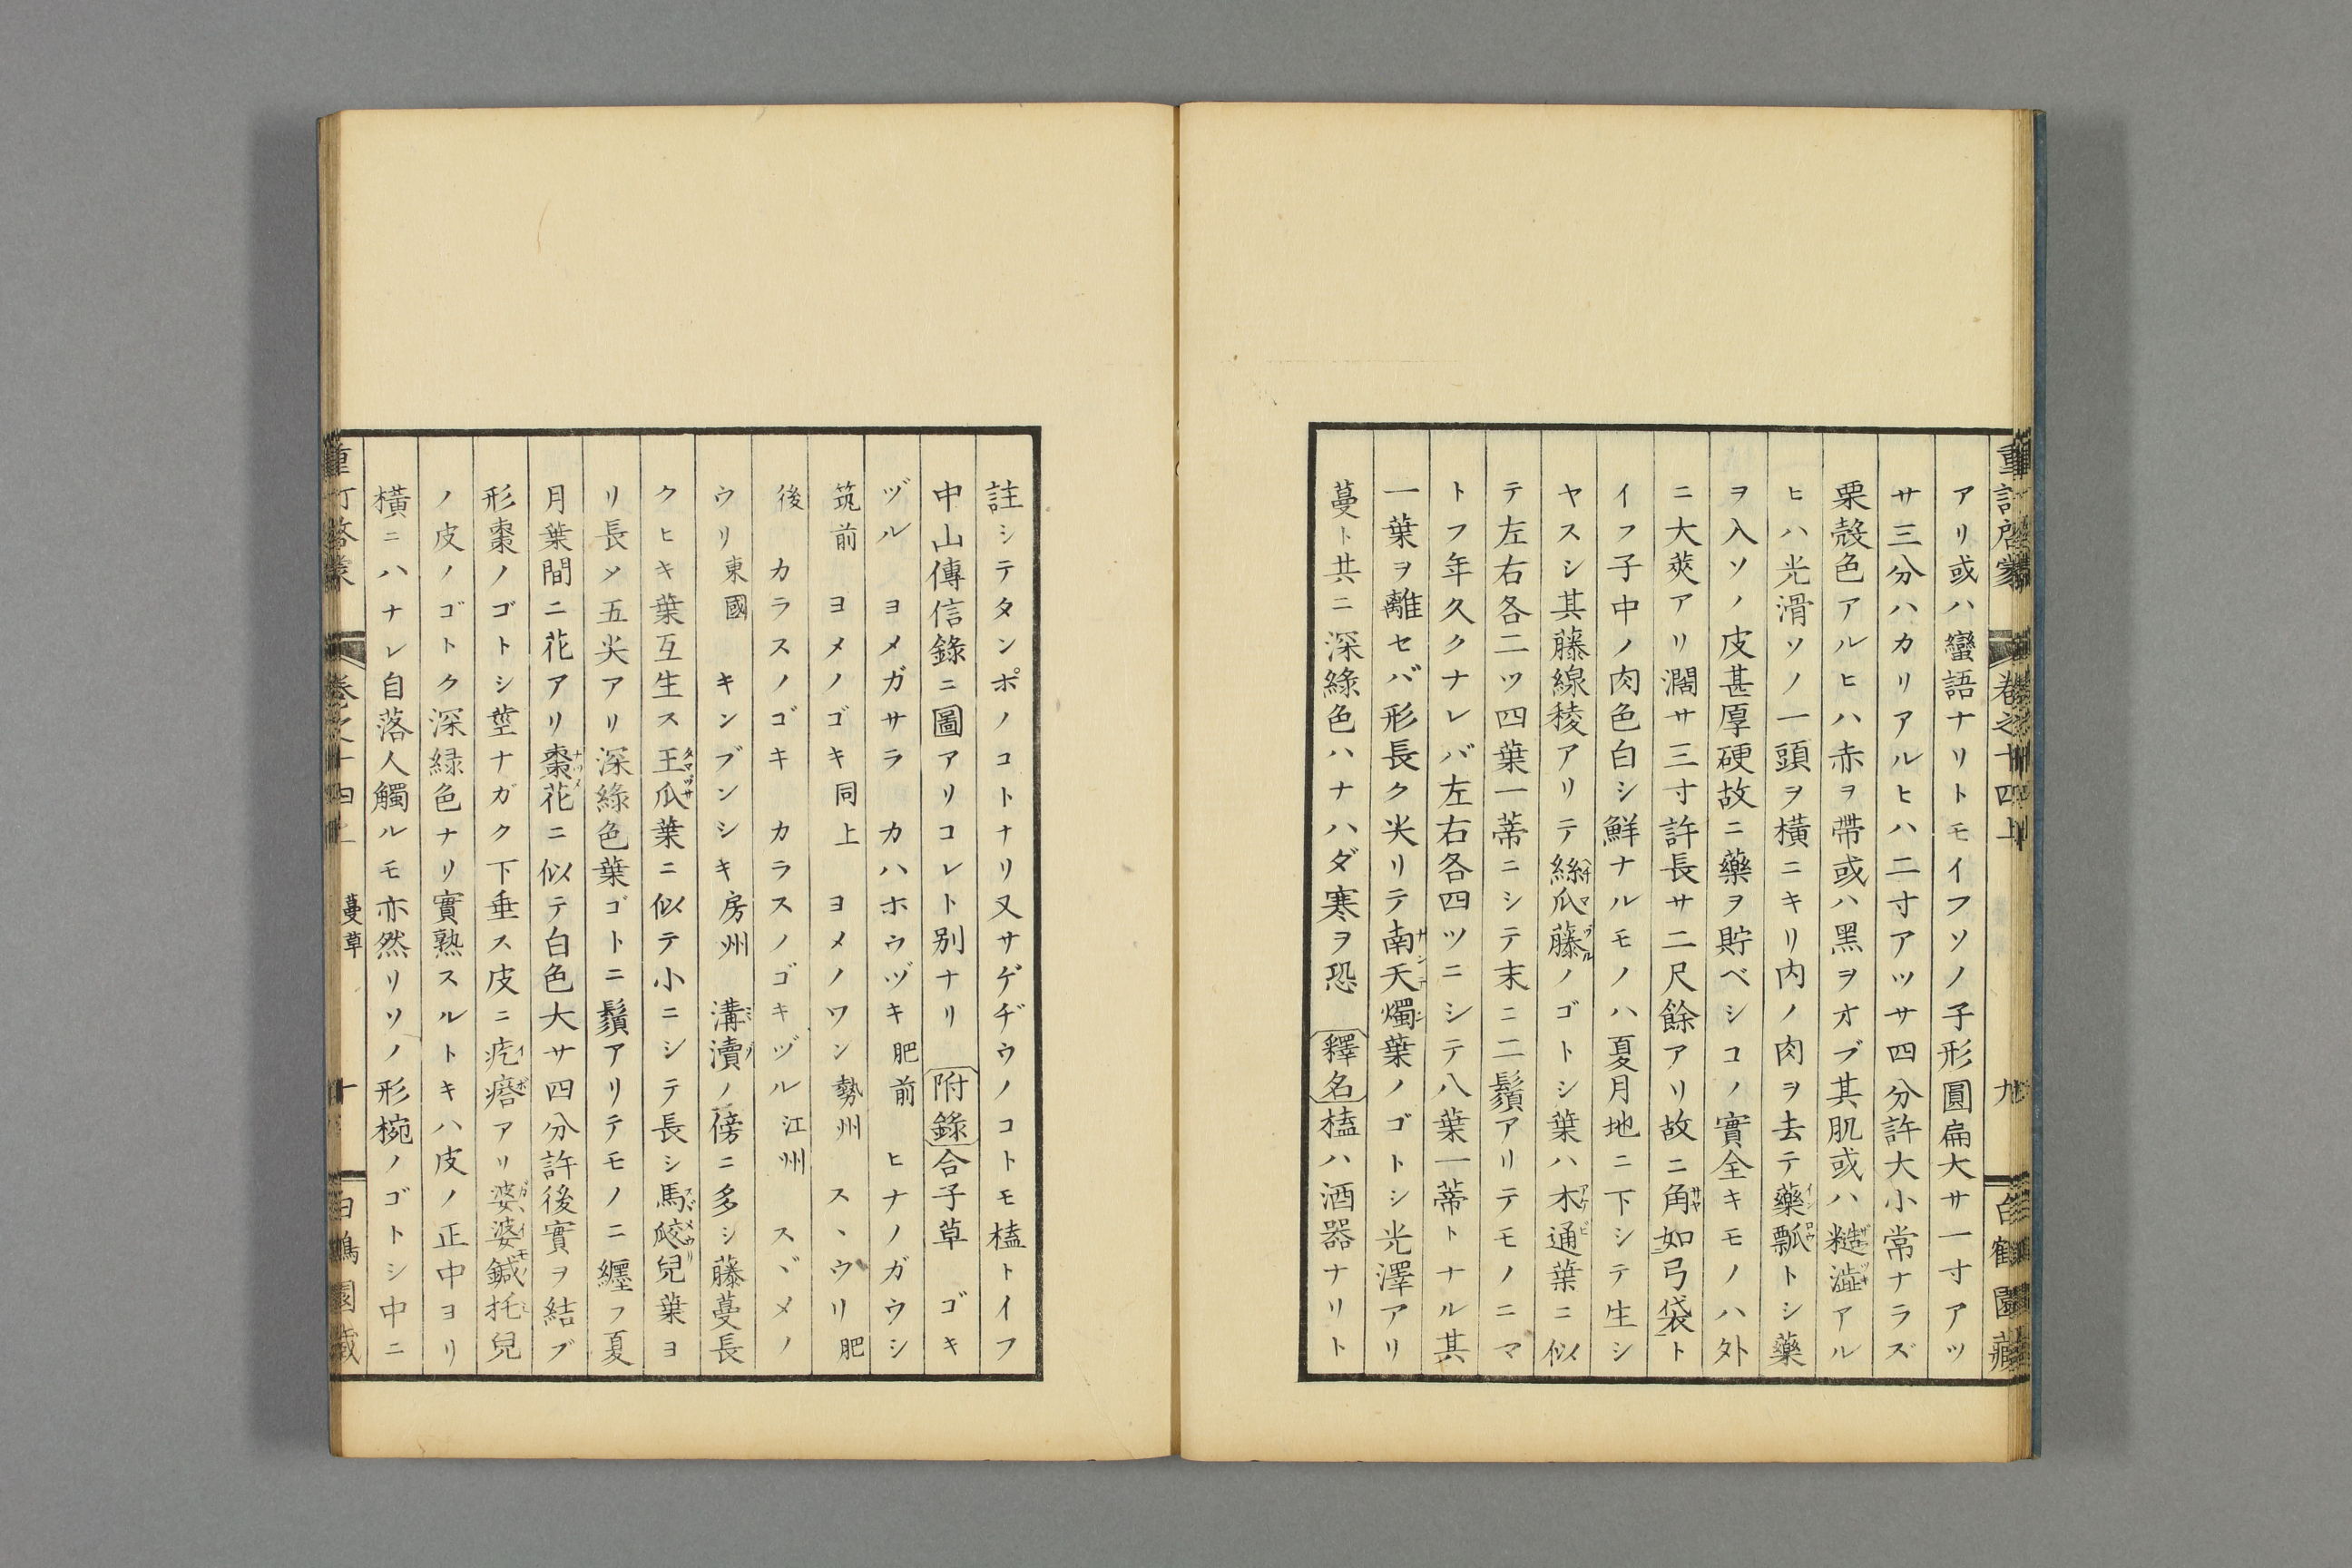 アリ或ハ蠻語ナリトモイフソノ子形圓扁大サ一寸アツ
サ三分ハカリアルヒハ二寸アツサ四分許大小常ナラズ
栗殻色アルヒハ赤ヲ帶或ハ黑ヲオブ其肌或ハ糙澁アル
ヒハ光滑ソノ一頭ヲ橫ニキリ內ノ肉ヲ去テ藥瓢トシ藥
ヲ入ソノ皮甚厚硬故ニ藥ヲ貯ベシコノ實全キモノハ外
ニ大莢アリ濶サ三寸許長サ二尺餘アリ故ニ角如弓袋ト
イフ子中ノ肉色白シ鮮ナルモノハ夏月地ニ下シテ生シ
ヤスシ其藤線稜アリテ絲瓜藤ノゴトシ葉ハ木通葉ニ似
テ左右各二ツ四葉一蒂ニシテ末ニ二鬚アリテモノニマ
トフ年久クナレバ左右各四ツニシテ八葉一蒂トナル其
一葉ヲ離セバ形長ク尖リテ南天燭葉ノゴトシ光澤アリ
蔓ト共ニ深綠色ハナハダ寒ヲ恐 釋名 榼ハ酒器ナリト
註シテタンポノコトナリ又サゲヂウノコトモ榼トイフ
中山傳信錄ニ圖アリコレト別ナリ 附錄 合子草 ゴキ
ヅル ヨメガサラ カハホウヅキ 肥前 ヒナノガウシ
筑前 ヨメノゴキ 同上 ヨメノワン 勢州 スヽウリ 肥
後 カラスノゴキ カラスノゴキヅル 江州 スヾメノ
ウリ 東國 キンブンシキ 房州 溝瀆ノ傍ニ多シ藤蔓長
クヒキ葉互生ス王瓜葉ニ似テ小ニシテ長シ馬㼎兒葉ヨ
リ長メ五尖アリ深綠色葉ゴトニ鬚アリテモノニ纏フ夏
月葉間ニ花アリ棗花ニ似テ白色大サ四分許後實ヲ結ブ
形棗ノゴトシ莖ナガク下垂ス皮ニ疙瘩アリ婆婆鍼托兒
ノ皮ノゴトク深緑色ナリ實熟スルトキハ皮ノ正中ヨリ
橫ニハナレ自落人觸ルモ亦然リソノ形椀ノゴトシ中ニ
卷之十四上 蔓草 十